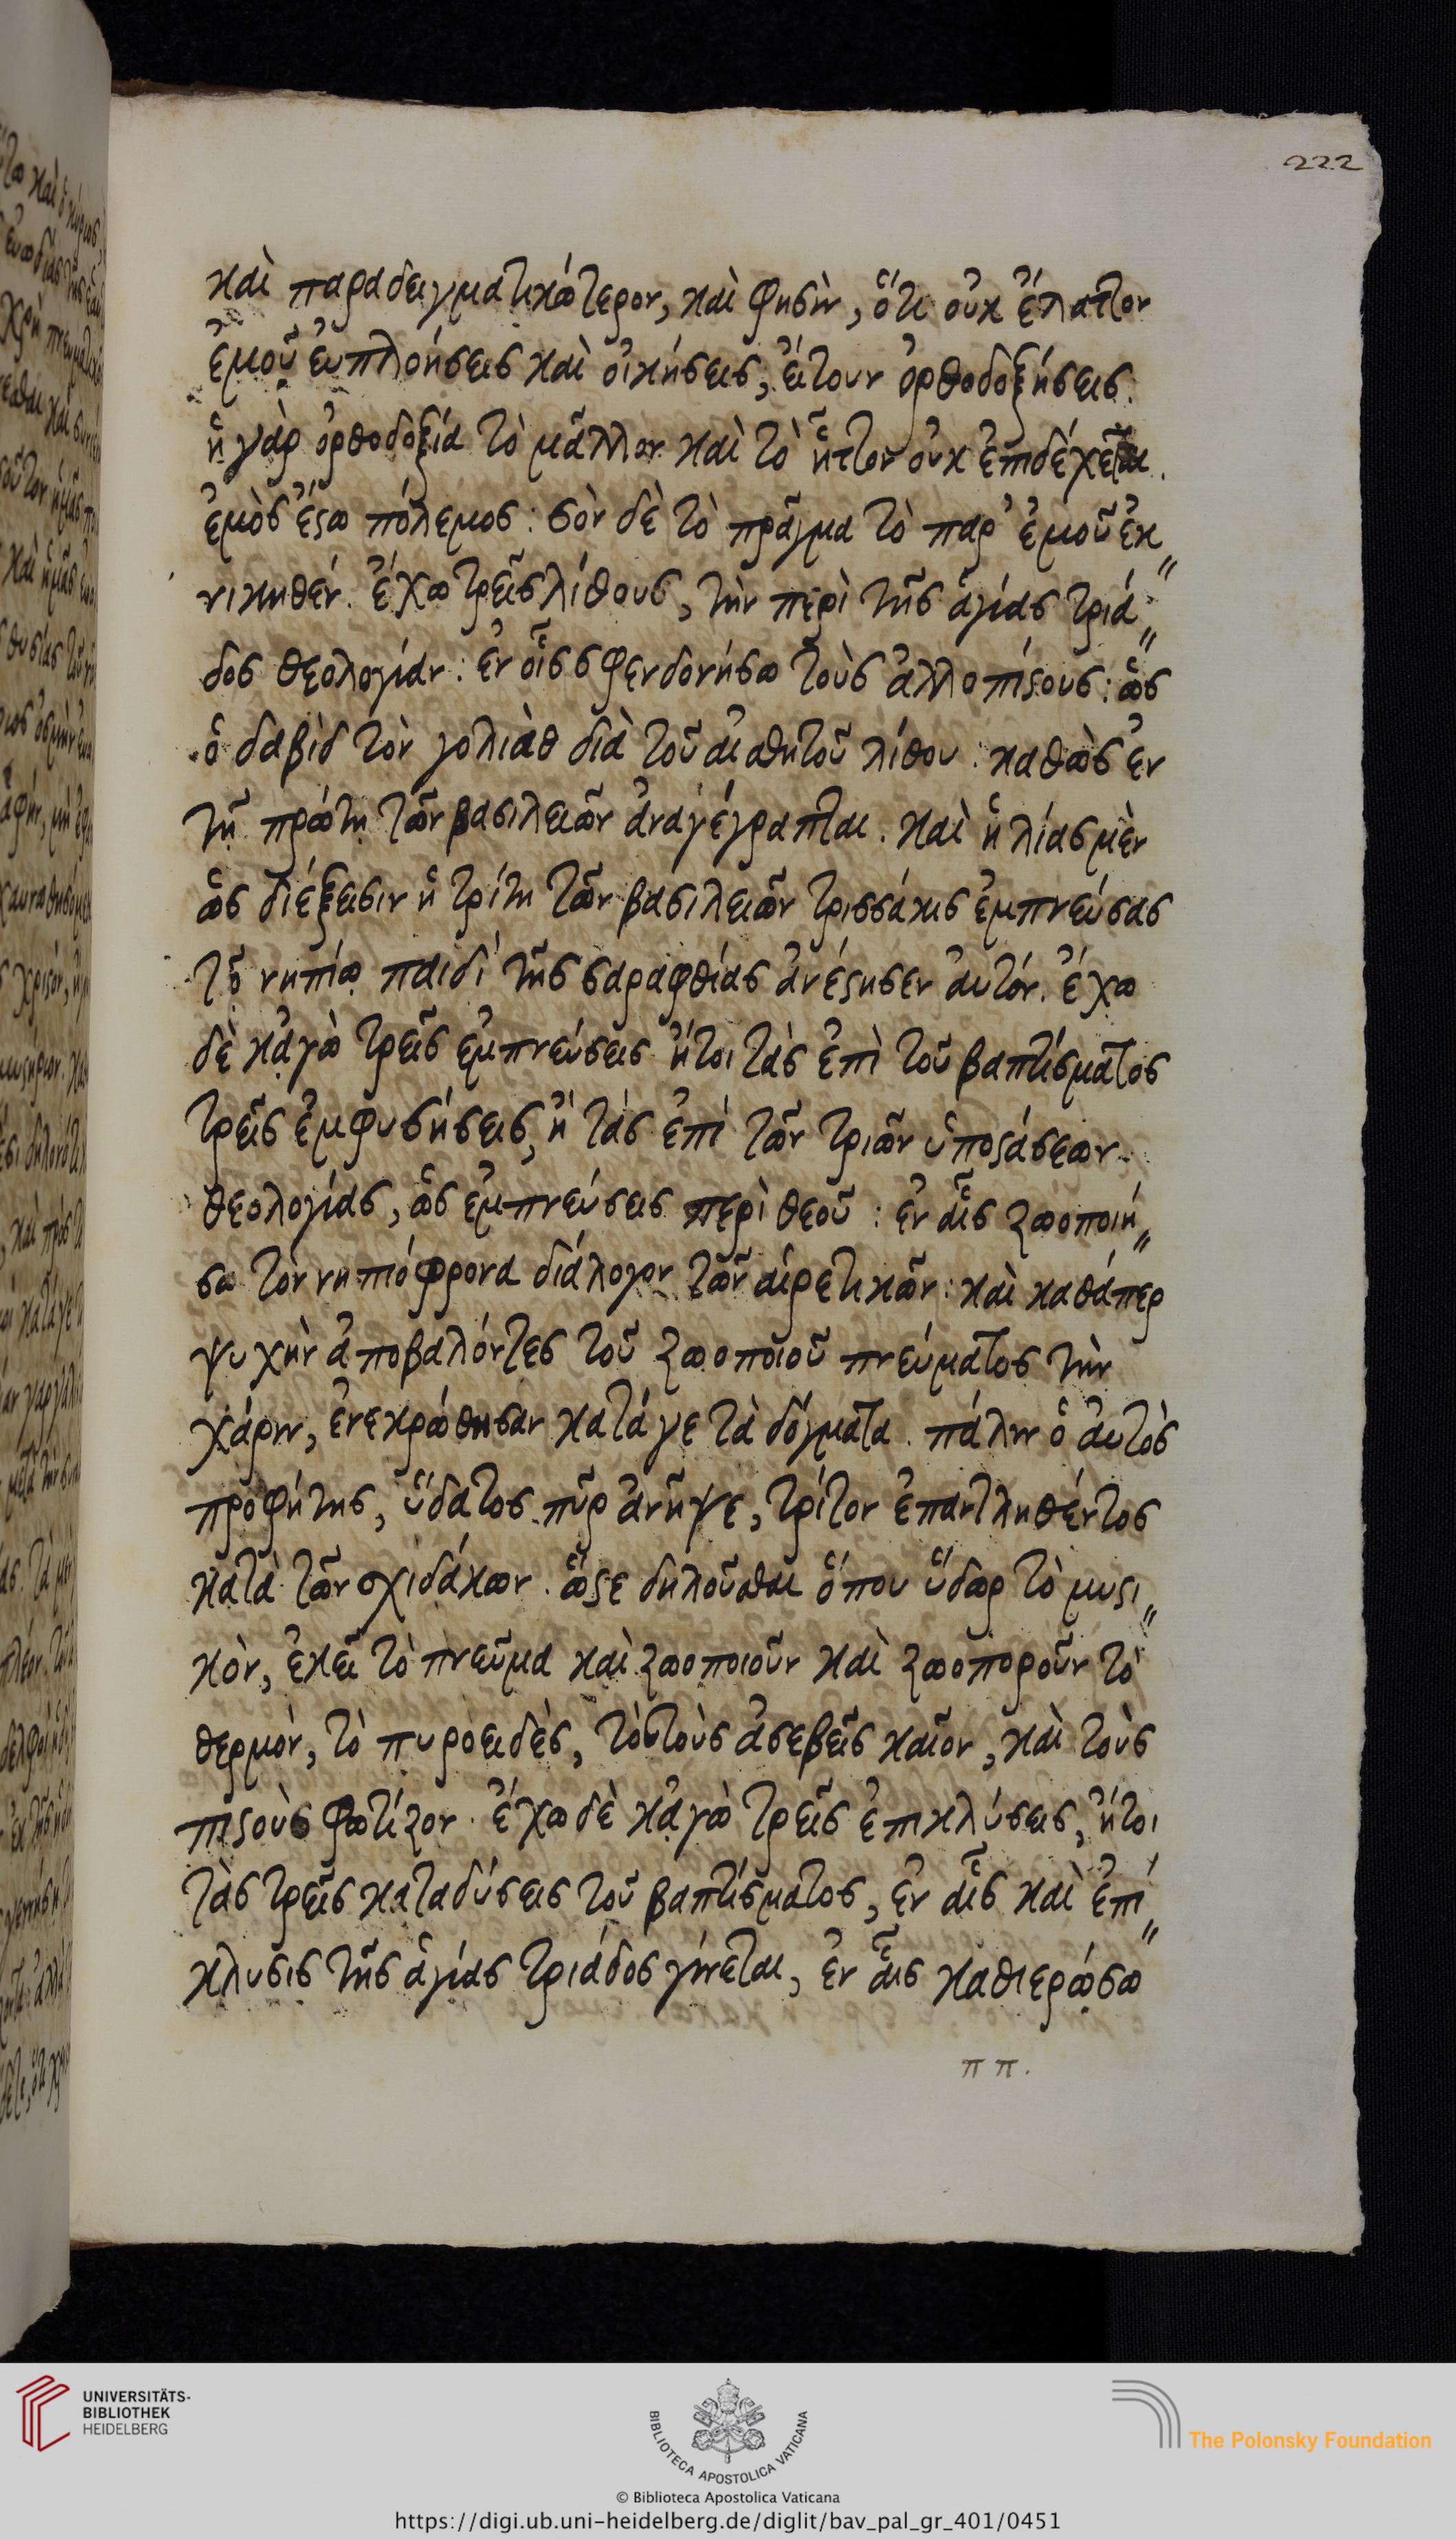 222
καὶ παραδειγματικώτερον, καὶ φησὶν, ὅτι οὐκ ἔλαττον
ἐμοῦ εὐπλοήσεις καὶ οἰκήσεις, εἴτουν ὀρθοδοξήσεις.
ἡ γὰρ ὀρθοδοξία τὸ μᾶλλον καὶ τὸ ἧττον οὐκ ἐπιδέχεται.
ἐμὸς ἔστω πόλεμος: σὸν δὲ τὸ πρᾶγμα τὸ παρ' ἐμοῦ ἐκ〃
νικηθέν. ἔχω τρεῖς λίθους, τὴν περὶ τῆς ἁγίας τριά〃
δος θεολογίαν: ἐν οἷς σφενδονήσω τοὺς ἀλλοπίστους: ὡς
ὁ δαβὶδ τὸν γολιὰθ διὰ τοῦ αἰσθητοῦ λίθου: καθὼς ἐν
τῇ πρώτῃ τῶν βασιλειῶν ἀναγέγραπται. καὶ ἡλίας μὲν
ὡς διέξεισιν ἡ τρίτη τῶν βασιλειῶν τρισσάκις ἐμπνεύσας
τῷ νηπίῳ παιδὶ τῆς σαραφθίας ἀνέστησεν αὐτόν. ἔχω
δὲ κἀγὼ τρεῖς ἐμπνεύσεις ἤτοι τὰς ἐπὶ τοῦ βαπτίσματος
τρεῖς ἐμφυσήσεις, ἢ τὰς ἐπὶ τῶν τριῶν ὑποστάσεων
θεολογίας, ὡς ἐμπνεύσεις περὶ θεοῦ: ἐν αἷς ζωοποιή〃
σω τὸν νηπιόφρονα διάλογον τῶν αἱρετικῶν: καὶ καθάπερ
ψυχὴν ἀποβαλόντες τοῦ ζωοποιοῦ πνεύματος τὴν
χάριν, ἐνεκρώθησαν κατά γε τὰ δόγματα. πάλιν ὁ αὐτὸς
προφήτης, ὕδατος πῦρ ἀνῆψε, τρίτον ἐπαντληθέντος
κατὰ τῶν σχιδάκων. ὥστε δηλοῦσθαι ὅπου ὕδωρ τὸ μυστι〃
κὸν, ἐκεῖ τὸ πνεῦμα καὶ ζωοποιοῦν καὶ ζωοποροῦν τὸ
θερμὸν, τὸ πυροειδὲς, τὸ τοὺς ἀσεβεῖς καῖον, καὶ τοὺς
πιστοὺς φωτίζον. ἔχω δὲ κἀγὼ τρεῖς ἐπικλύσεις, ἤτοι
τὰς τρεῖς καταδύσεις τοῦ βαπτίσματος, ἐν αἷς καὶ ἐπί〃
κλυσις τῆς ἁγίας τριάδος γίνεται, ἐν αἷς καθιερώσω
π π.
UNIVERSITÄTS-
BIBLIOTHEK
HEIDELBERG
BIBLIOTECA APOSTOLICA VATICANA
The Polonsky Foundation
© Biblioteca Apostolica Vaticana
https://digi.ub.uni-heidelberg.de/diglit/bav_pal_gr_401/0451